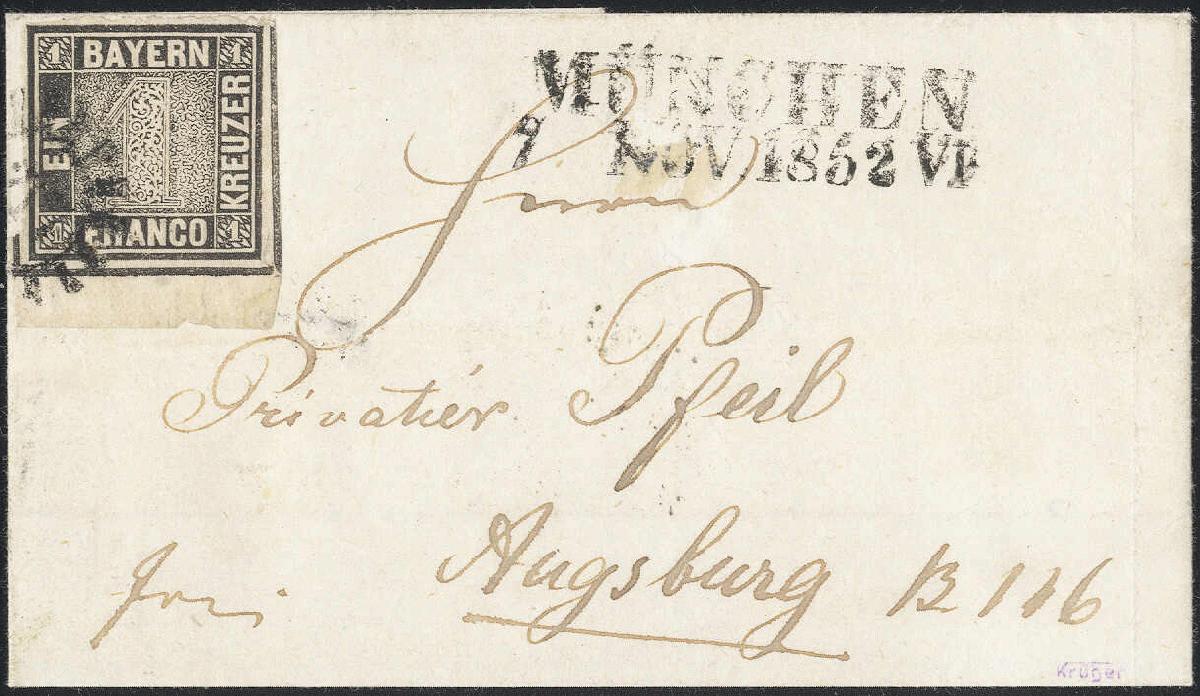 1 BAYERN 1
EIN
KREUZER
1 FRANCO 1
MÜNCHEN
NOV. 1852 VI
Herrn
Privatiér Pfeil
Augsburg B 116
frei
Krüger